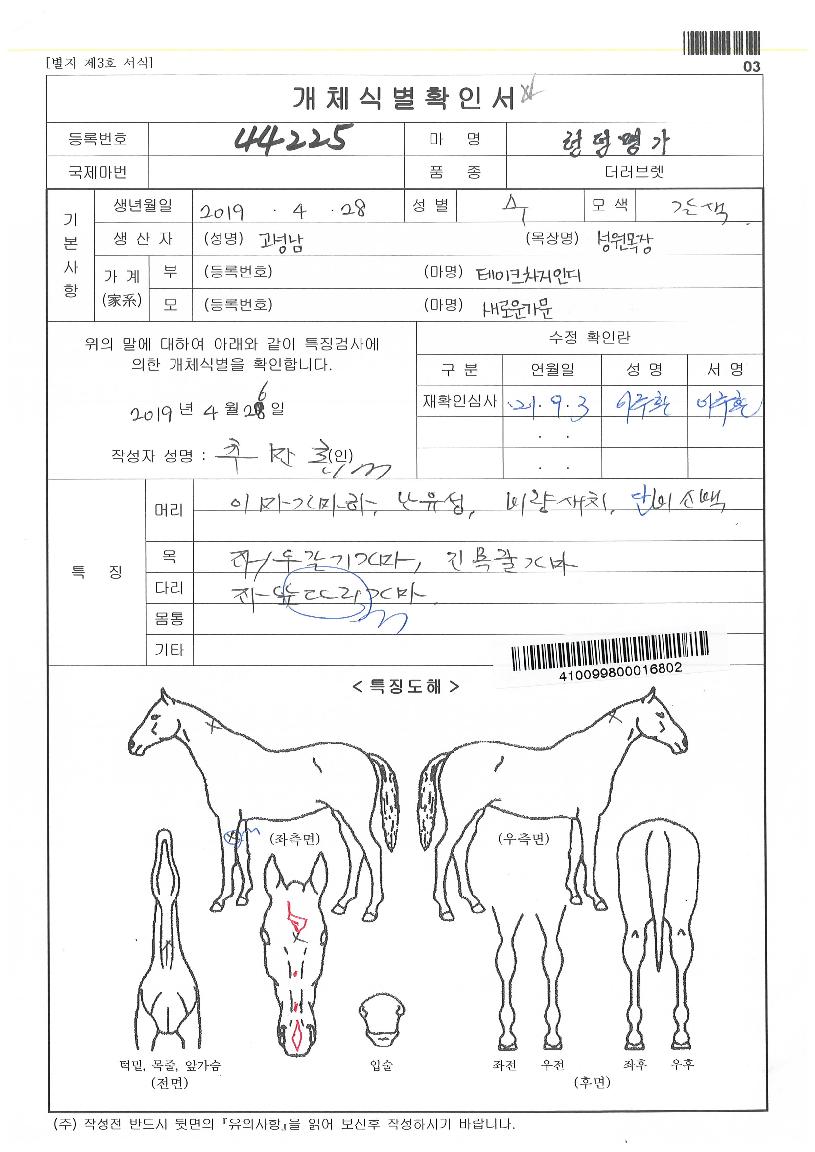 [별지 제3호 서식]
03
개체식별확인서
등록번호 44225 마 명 런덤명가
국제마번 품 종 더러브렛
기본사항
생년월일 2019 . 4 . 28 성별 수 모색 갈색
생 산 자 (성명) 고성남 (목장명) 성원목장
가 계 (家系) 부 (등록번호) (마명) 테이크차지인디
모 (등록번호) (마명) 새로운가문
위의 말에 대하여 아래와 같이 특징검사에
의한 개체식별을 확인합니다.
2019 년 4 월 일
작성자 성명 : (인)
수정 확인란
구 분 연월일 성 명 서 명
재확인심사 '21. 9. 3 이주환 이주환
. .
. .
특 징
머리 이마가마하, 난유성, 비량새치, 단비소백
목 좌/우갈기가마, 긴목줄가마
다리 좌앞뜨락가마
몸통
기타
410099800016802
< 특징도해 >
(좌측면) (우측면)
턱밑, 목줄, 앞가슴
(전면)
입술
좌전 우전 좌후 우후
(후면)
(주) 작성전 반드시 뒷면의 『유의사항』을 읽어 보신후 작성하시기 바랍니다.